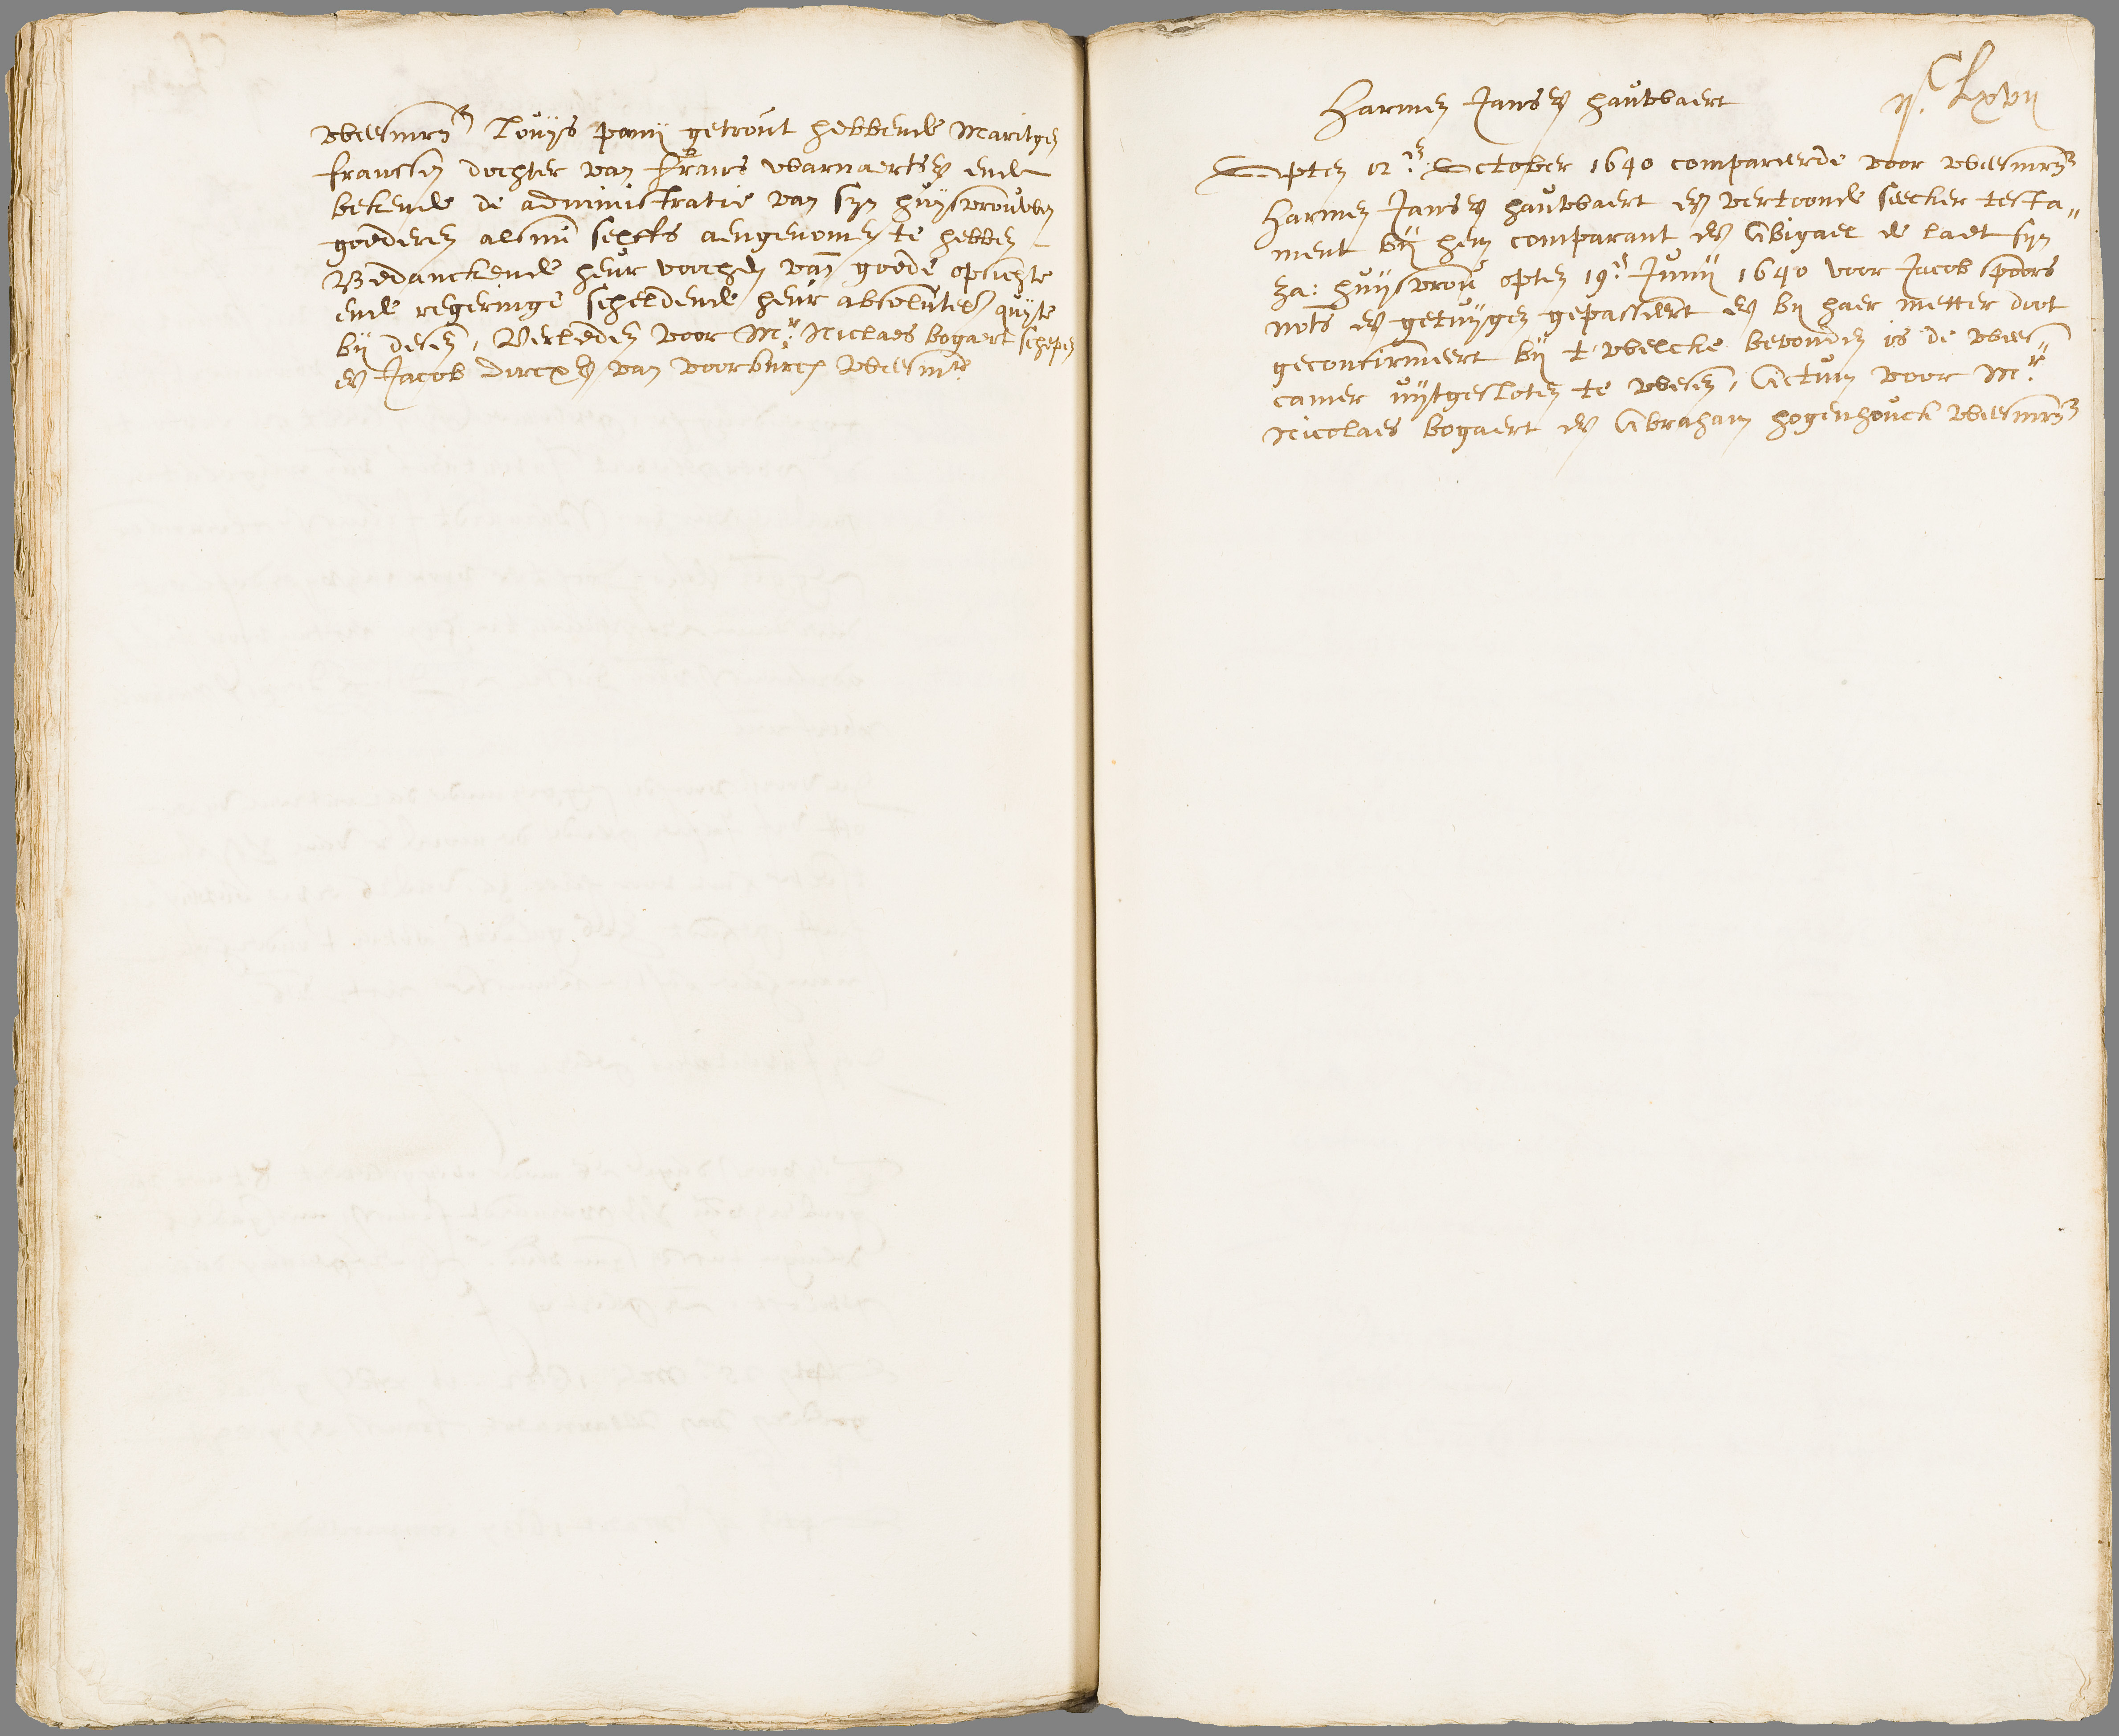 weesmrn Louys pouij getrout hebbende Maritgen
franssen dochter van frans warnaertsz ende
bekende de administratie van syn huysvrouwen
goederen alsnu selffs aengenomen te hebben
Bedanckende heur voochden van goede opsichte
ende regeringe scheldende heur absolutelyck quyte
bij desen, Verleden voor Mr. Niclaes bogaert schepen
en Jacob dircxz van voorburch weesmr.
IIC Lxvij
Harmen Jansz hauwaert
Opten 12en October 1640 compareerde voor weesmrn
Harmen Jansz hauwaert en vertoonde seecker testa„
ment bij hem comparant en Abigael de laet syn
za: huysvrou opten 19en Junij 1640 voor Jacob spoors
nots en getuygen gepasseert en bij haer metter doot
geconfirmeert bij t welcke bevonden is de wees„
camer uijtgesloten te wesen, Actum voor Mr.
Nicolaes bogaert en Abraham hogenhouck weesmrn